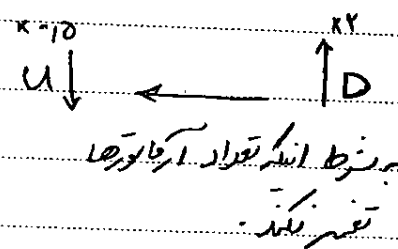 x-۱۵ x۲
U D
به شرط اینکه تعداد آرماتورها
تغییر نکند.